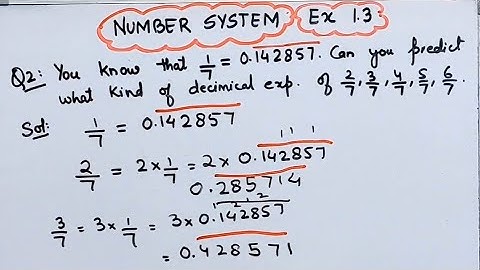 NUMBER SYSTEM: Ex 1.3:
Q2: You know that 1/7 = 0.142857. Can you predict
what kind of decimical exp. of 2/7, 3/7, 4/7, 5/7, 6/7.
Sol: 1/7 = 0.142857
1 1 1
2/7 = 2 × 1/7 = 2 × 0.142857
0.285714
1 2 1 2
3/7 = 3 × 1/7 = 3 × 0.142857
= 0.428571